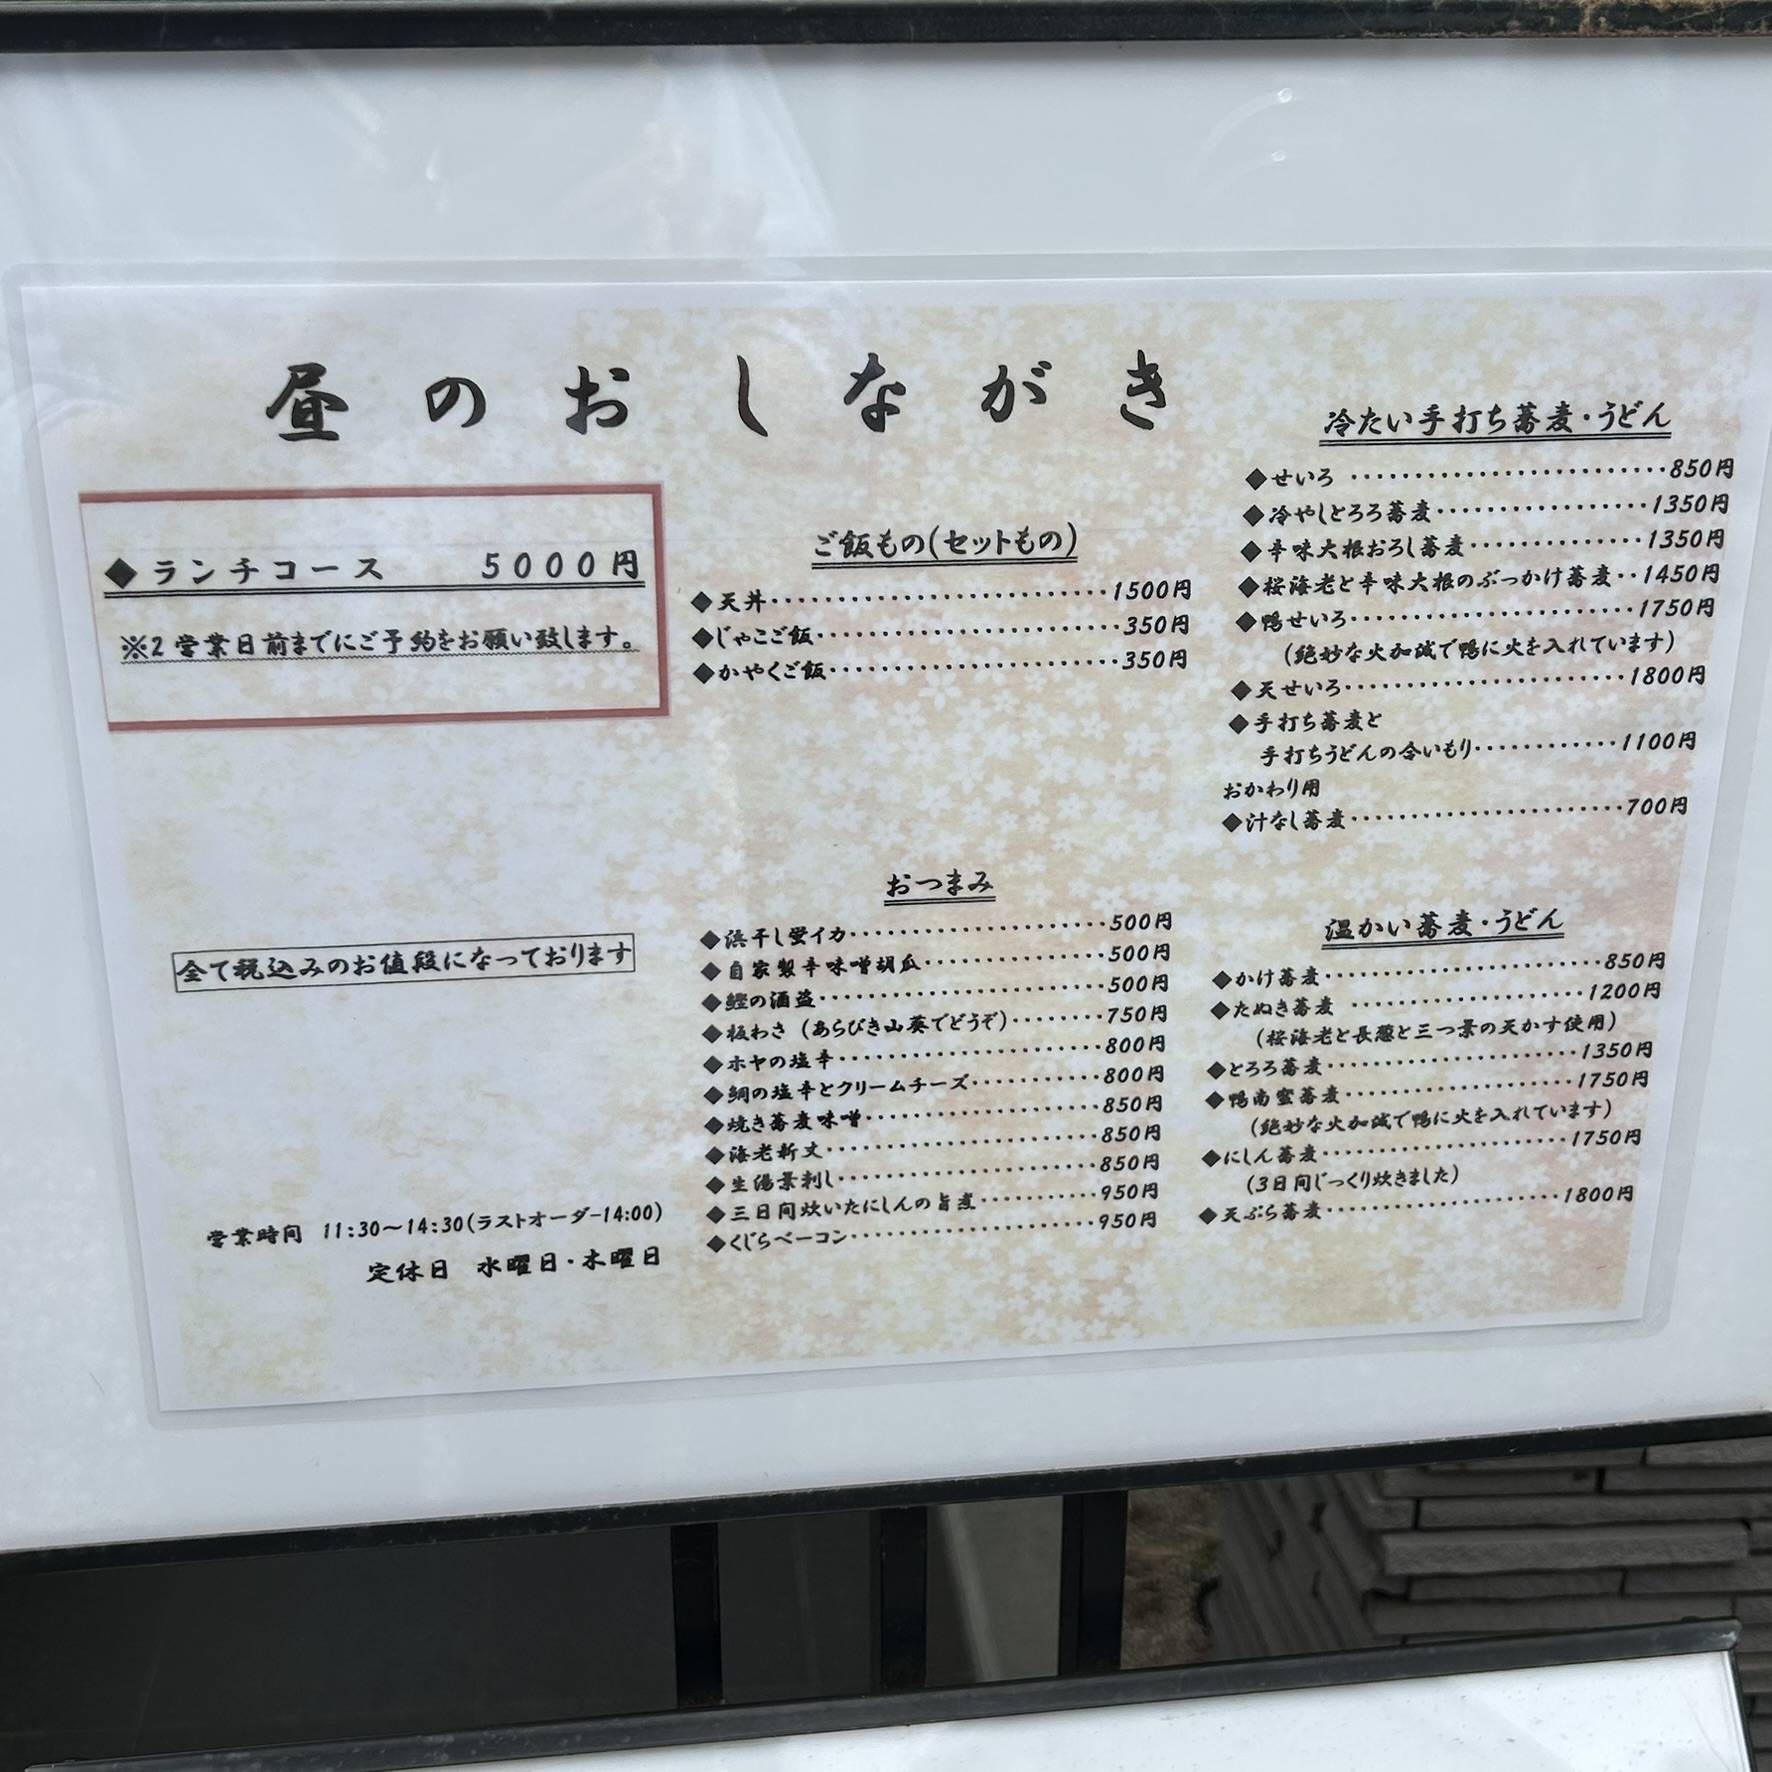 昼のおしながき
◆ランチコース 5000円
※2営業日前までにご予約をお願い致します。
全て税込みのお値段になっております
営業時間 11:30～14:30(ラストオーダー14:00)
定休日 水曜日・木曜日
ご飯もの(セットもの)
◆天丼・・・・・・・・・・・・・・・・・・・・・・1500円
◆じゃこご飯・・・・・・・・・・・・・・・・・・・・350円
◆かやくご飯・・・・・・・・・・・・・・・・・・・350円
おつまみ
◆浜干し蛍イカ・・・・・・・・・・・・・・・・・・500円
◆自家製辛味噌胡瓜・・・・・・・・・・・・・500円
◆鰹の酒盗・・・・・・・・・・・・・・・・・・・・500円
◆板わさ（あらびき山葵でどうぞ）・・・・・・・・750円
◆ホヤの塩辛・・・・・・・・・・・・・・・・・・800円
◆鯛の塩辛とクリームチーズ・・・・・・・・・・・800円
◆焼き蕎麦味噌・・・・・・・・・・・・・・・・850円
◆海老新丈・・・・・・・・・・・・・・・・・・・850円
◆生湯葉刺し・・・・・・・・・・・・・・・・・・850円
◆三日間炊いたにしんの旨煮・・・・・・・・・・950円
◆くじらベーコン・・・・・・・・・・・・・・・・・950円
冷たい手打ち蕎麦・うどん
◆せいろ ・・・・・・・・・・・・・・・・・・・・・・・・・850円
◆冷やしとろろ蕎麦・・・・・・・・・・・・・・・・・1350円
◆辛味大根おろし蕎麦・・・・・・・・・・・・・・1350円
◆桜海老と辛味大根のぶっかけ蕎麦・・1450円
◆鴨せいろ・・・・・・・・・・・・・・・・・・・・・・1750円
（絶妙な火加減で鴨に火を入れています）
◆天せいろ・・・・・・・・・・・・・・・・・・・・・・1800円
◆手打ち蕎麦と
手打ちうどんの合いもり・・・・・・・・・・・・1100円
おかわり用
◆汁なし蕎麦・・・・・・・・・・・・・・・・・・・・・・700円
温かい蕎麦・うどん
◆かけ蕎麦・・・・・・・・・・・・・・・・・・・・・・850円
◆たぬき蕎麦 ・・・・・・・・・・・・・・・・・・1200円
（桜海老と長葱と三つ葉の天かす使用）
◆とろろ蕎麦・・・・・・・・・・・・・・・・・・・・1350円
◆鴨南蛮蕎麦・・・・・・・・・・・・・・・・・・1750円
（絶妙な火加減で鴨に火を入れています）
◆にしん蕎麦・・・・・・・・・・・・・・・・・・・1750円
（3日間じっくり炊きました）
◆天ぷら蕎麦・・・・・・・・・・・・・・・・・・1800円